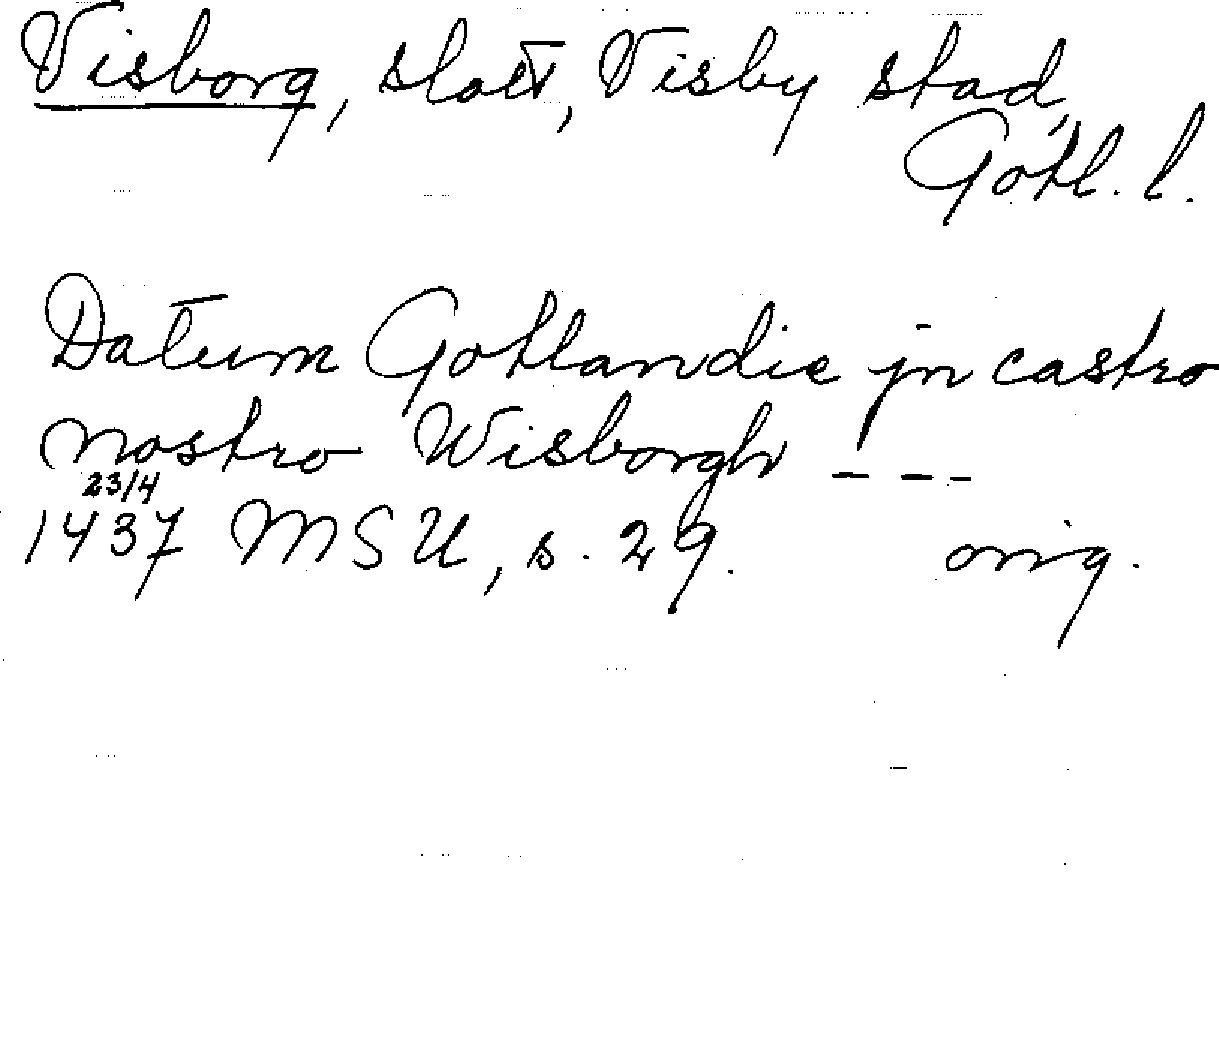 Visborg, slott, Visby stad,
Gotl. l.
Datum Gotlandie jn castro
nostro Wisborgh - - -
23/4
1437 MSU, s. 29. orig.